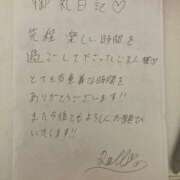 御礼日記♡
先程 楽しい時間を
過ごして下さった
とても有意義な時間を
ありがとうございます!!
また今後ともよろしくお願い
いたします!!